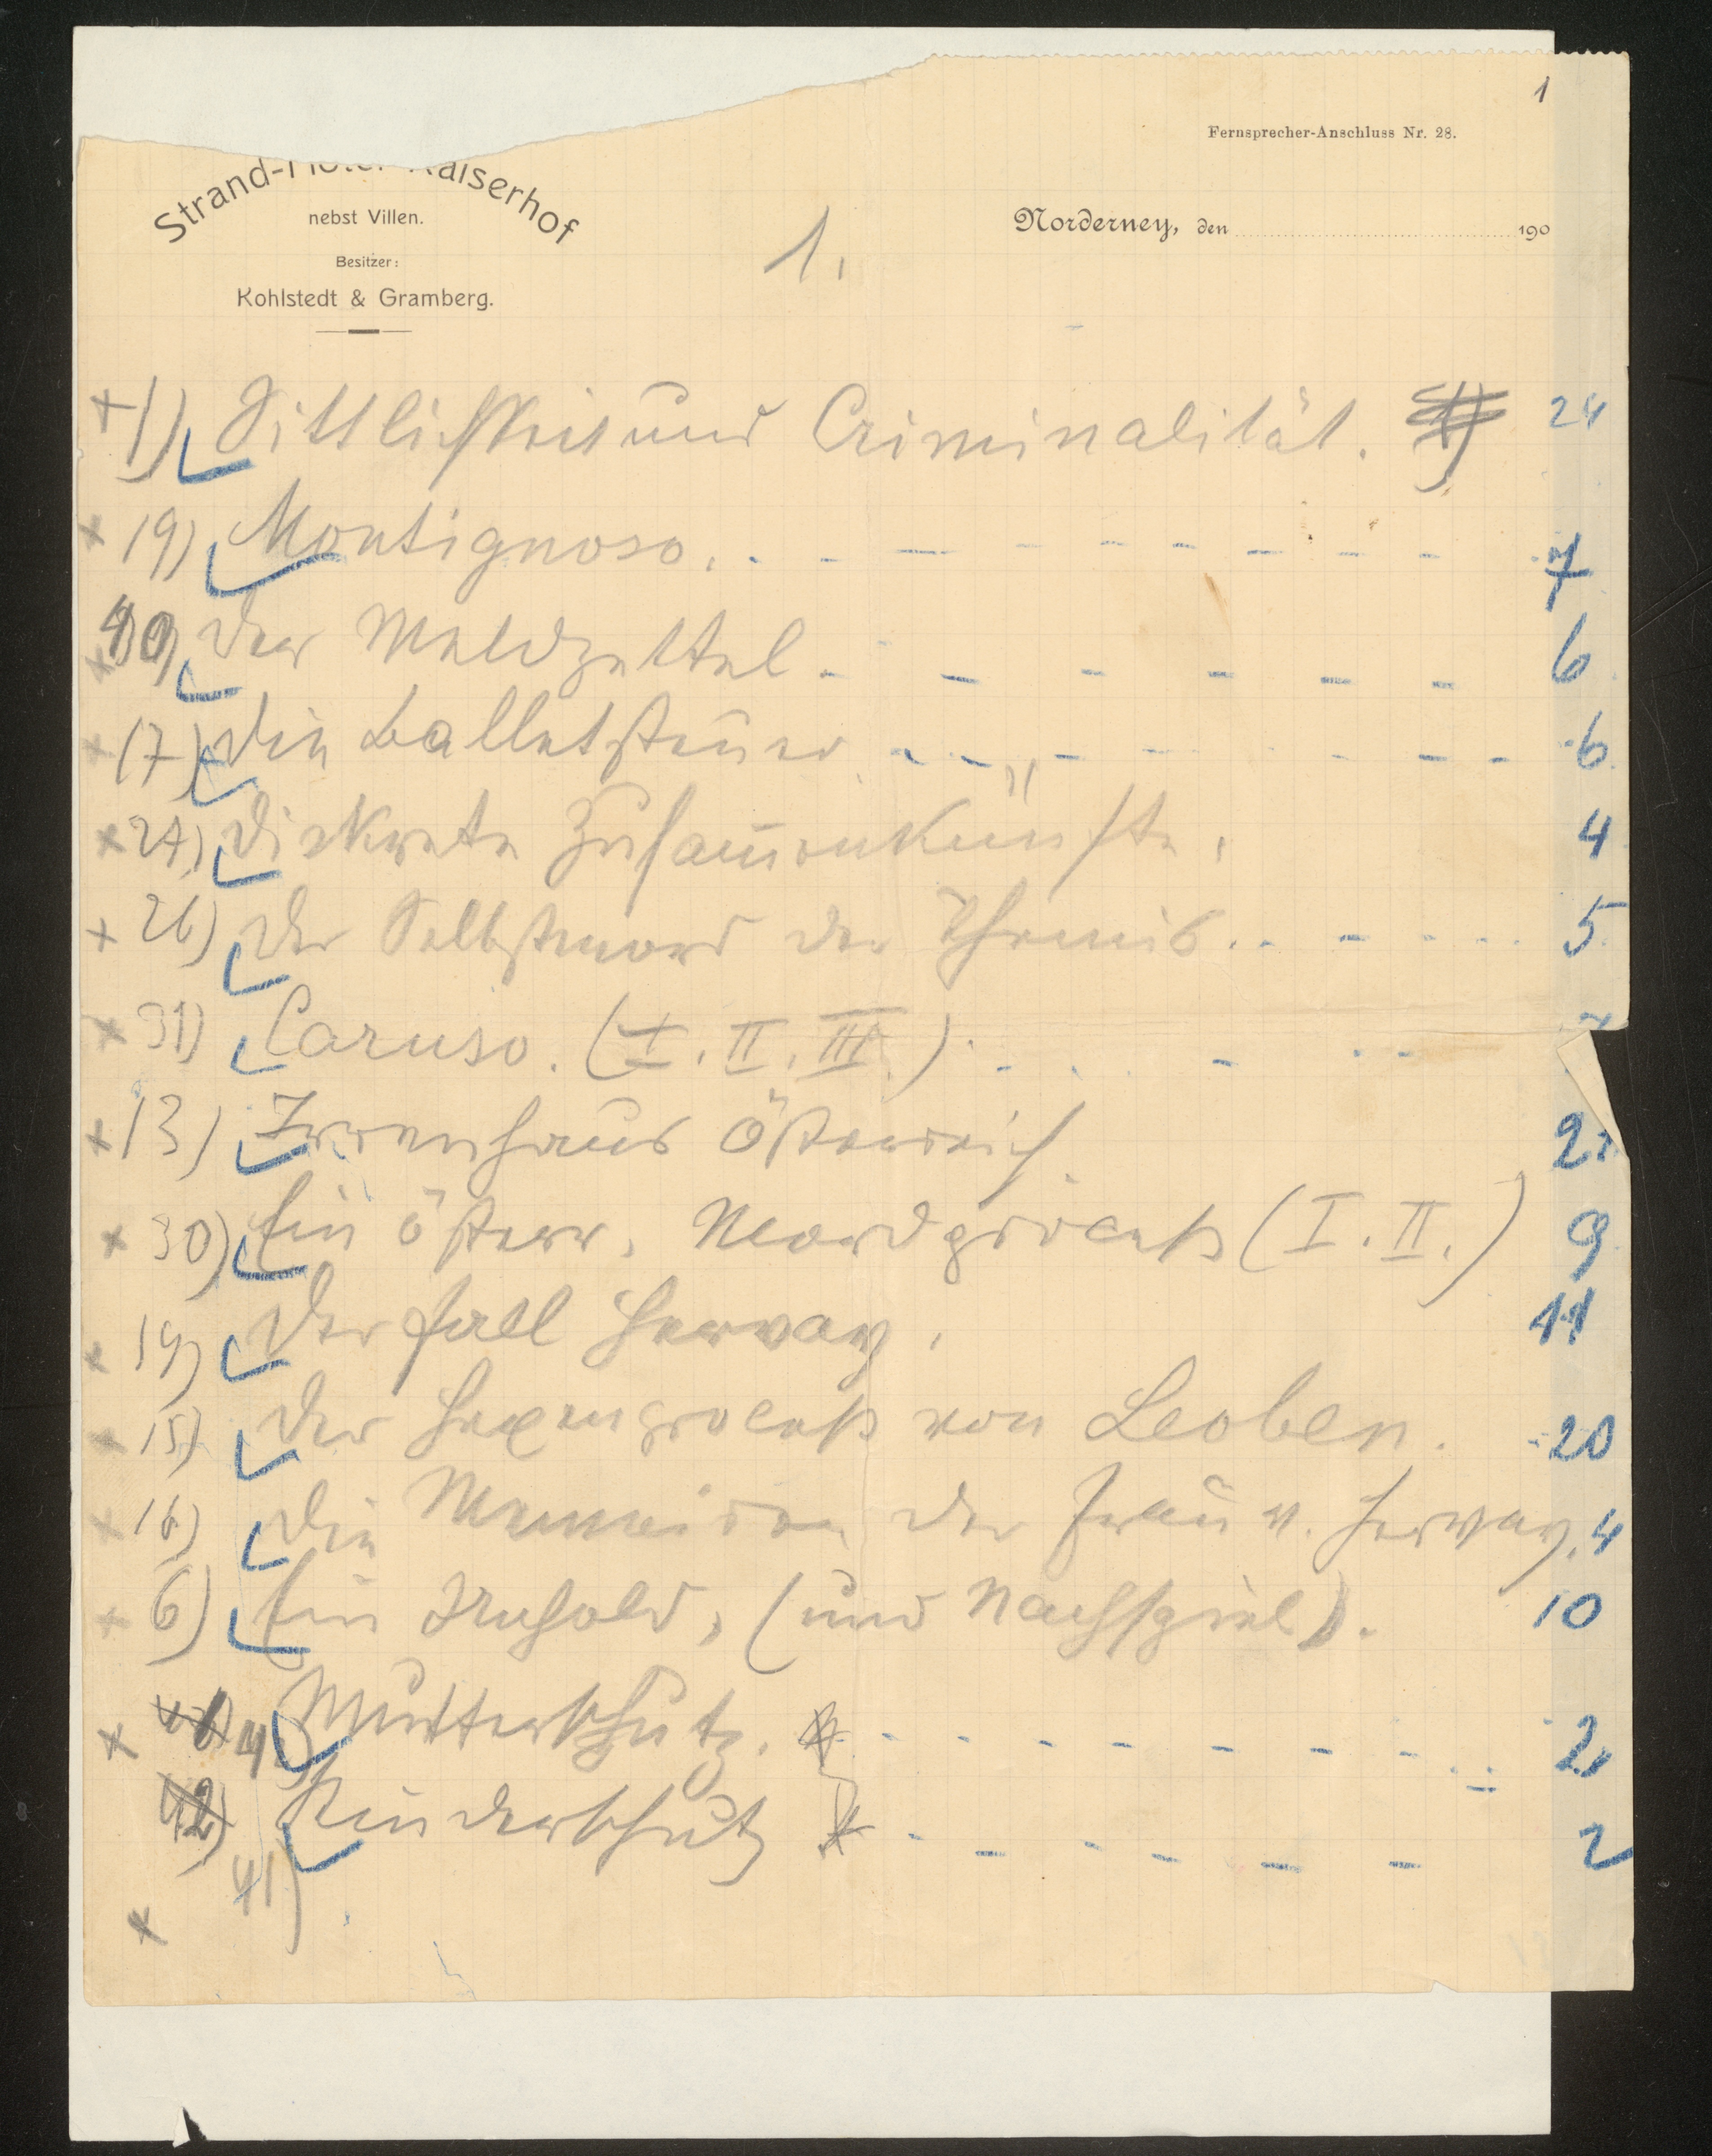 1
Fernsprecher-Anschluss Nr. 28.
Strand-Hotel Kaiserhof
nebst Villen.
Besitzer:
Kohlstedt & Gramberg.
Norderney, den 190
1.
+ 1) Sittlichkeit und Criminalität. 24
x 19) Montignoso. 7
x Der Meldzettel 6
x 17) Die Balletsteuer 6
x 27) Diskrete Zusammenkünfte. 4
x 26) Der Selbstmord der Themis. 5
x 31) Caruso. (I. II. III.)
x 13) Irrenhaus Österreich. 22
x 30) Ein österr. Mordproceß (I. II.) 9
x Der Fall Hervay. 11
x 15) Der Hexenproceß von Leoben. 20
x 16) Die Memoiren der Frau v. Hervay. 4
x 6) Ein Unhold, (und Nachspiel). 10
x Mutterschutz. 2
42) Kinderschutz 2
41)
x